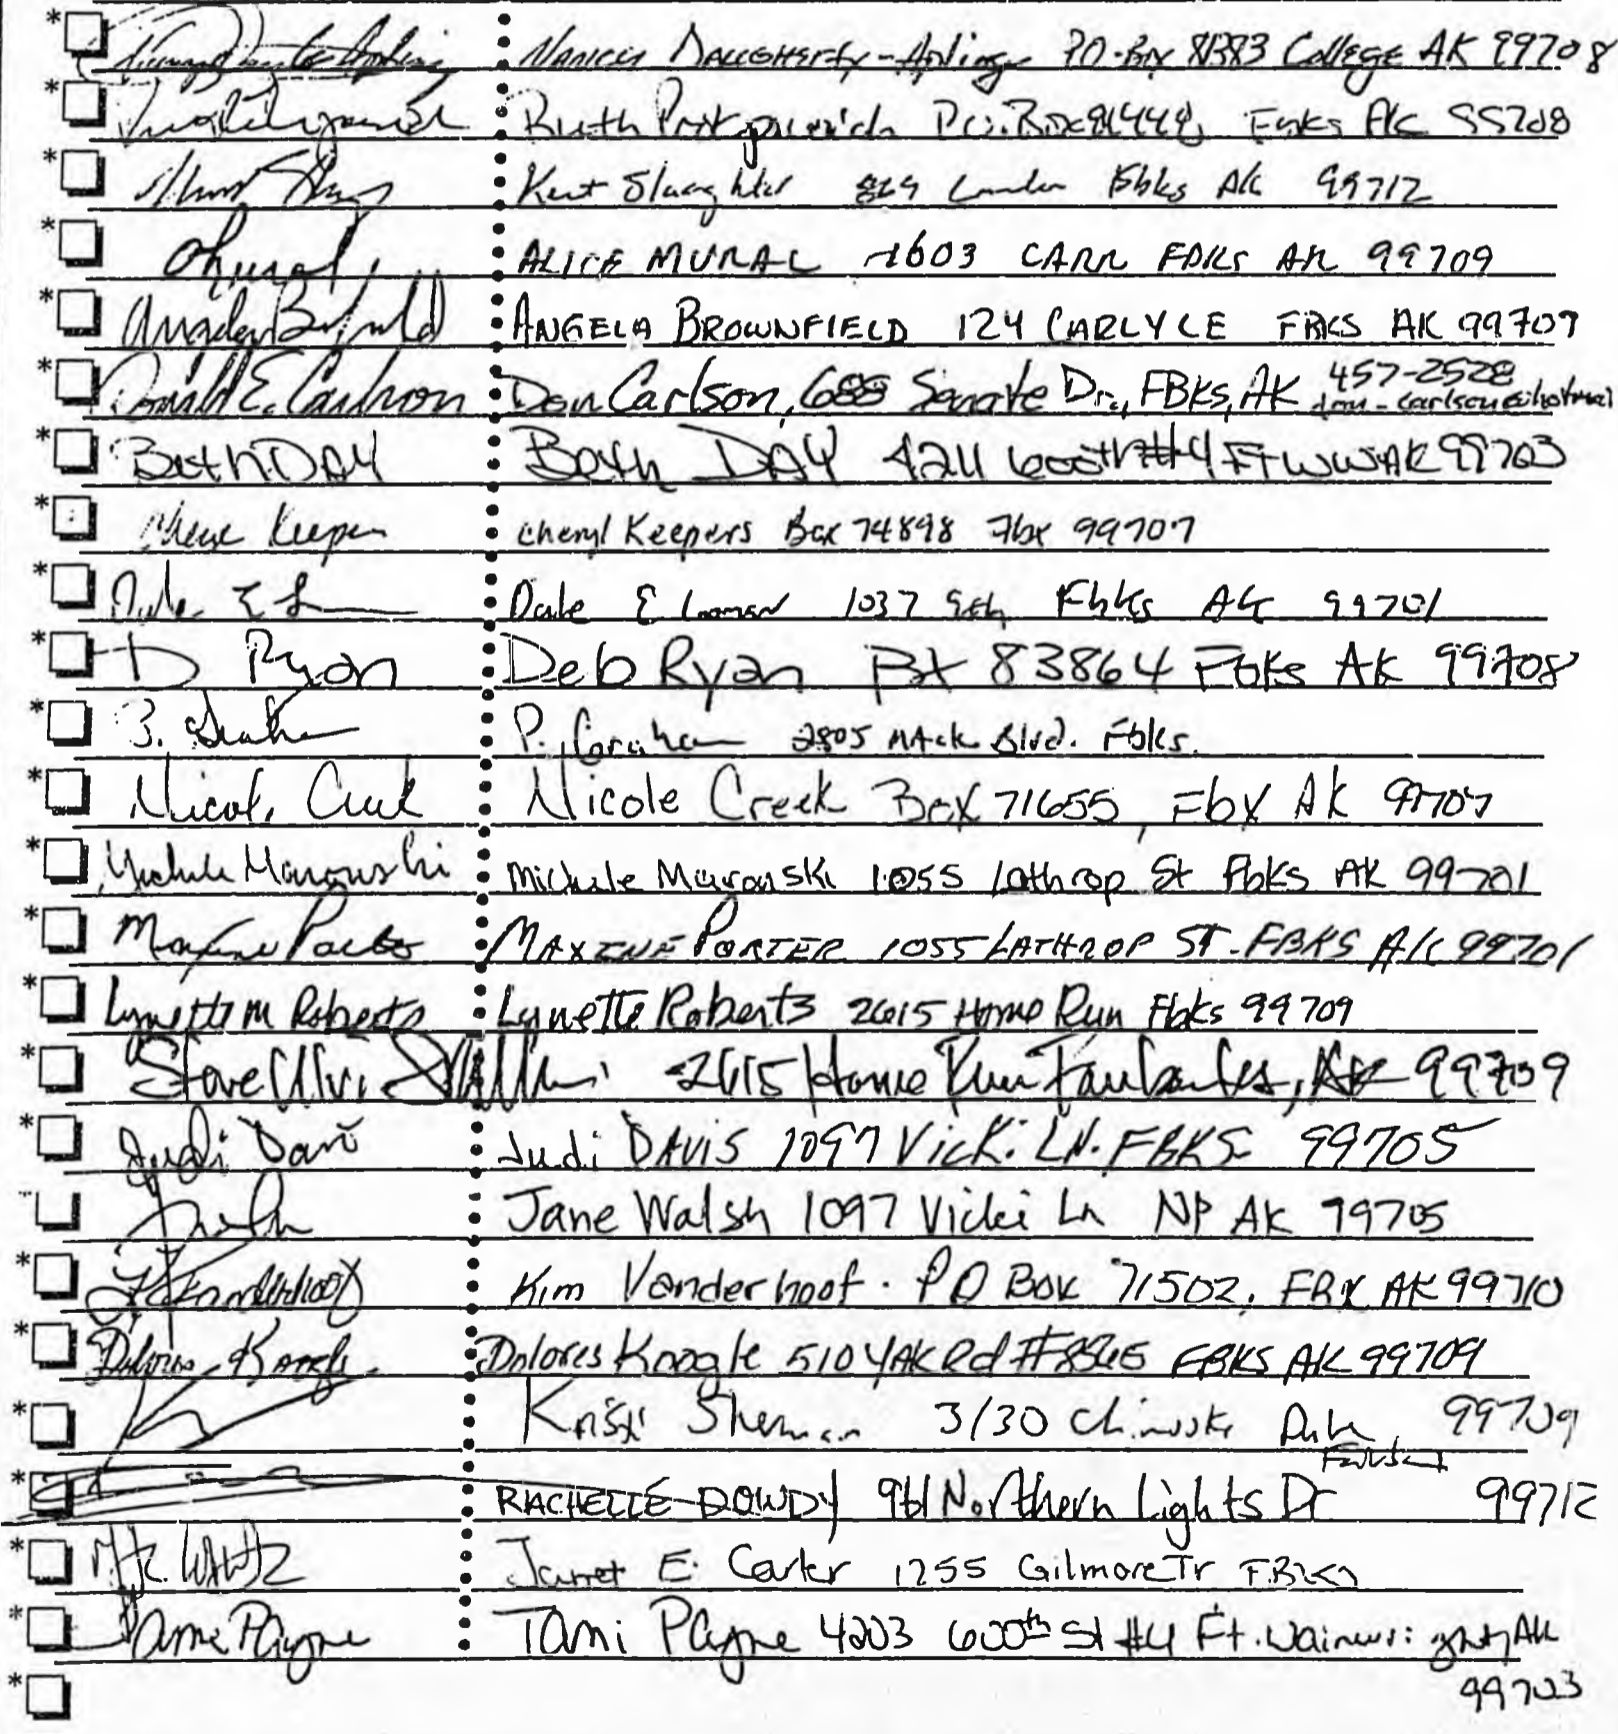 * Nancy Daugherty-Arling PO. Box 81383 College AK 99708
* Ruth P.O. Box 81448, Fbks AK 99708
* Kurt Slaughter 869 Fbks AK 99712
* ALICE MURAL 1603 CARR FBKS AK 99709
* Angela B ANGELA BROWNFIELD 124 CARLYLE FBKS AK 99709
* Donald E. Carlson Don Carlson, 688 Senate Dr., FBKS, AK 457-2528
* Beth DAY Beth DAY 4211 600th #4 Ft WW AK 99703
* Keepers cheryl Keepers Box 74898 Fbx 99707
* Dale E L Dale E Looman 1037 9th Fbks AK 99701
* D Ryan Deb Ryan Bx 83864 Fbks AK 99708
* Graham P. Graham 2805 MAck Blvd. Fbks.
* Nicole Creek Nicole Creek Box 71655, Fbx AK 99707
* Michele Marowski Michele Marowski 1055 Lathrop St Fbks AK 99701
* Maxine Porter MAXINE PORTER 1055 LATHROP ST. FBKS AK 99701
* Lynette M Roberts Lynette Roberts 2615 Home Run Fbks 99709
* Steve Ulvi 2615 Home Run Fairbanks, AK 99709
* Judi Davis Judi DAVIS 1097 Vicki LN. FBKS 99705
Jane Walsh 1097 Vicki Ln NP AK 99705
* K Vanderhoof Kim Vanderhoof. PO Box 71502, FBX AK 99710
* Dolores Koogle Dolores Koogle 5104 AK Rd #8565 FBKS AK 99709
* Kristi Sherman 3130 Chinook 99709
* RACHELLE DOWDY 961 Northern Lights Dr 99712
* Janet E. Carter 1255 Gilmore Tr FBKS
* Tami Payne Tami Payne 4203 600th St #4 Ft. Wainwright, AK
* 99703